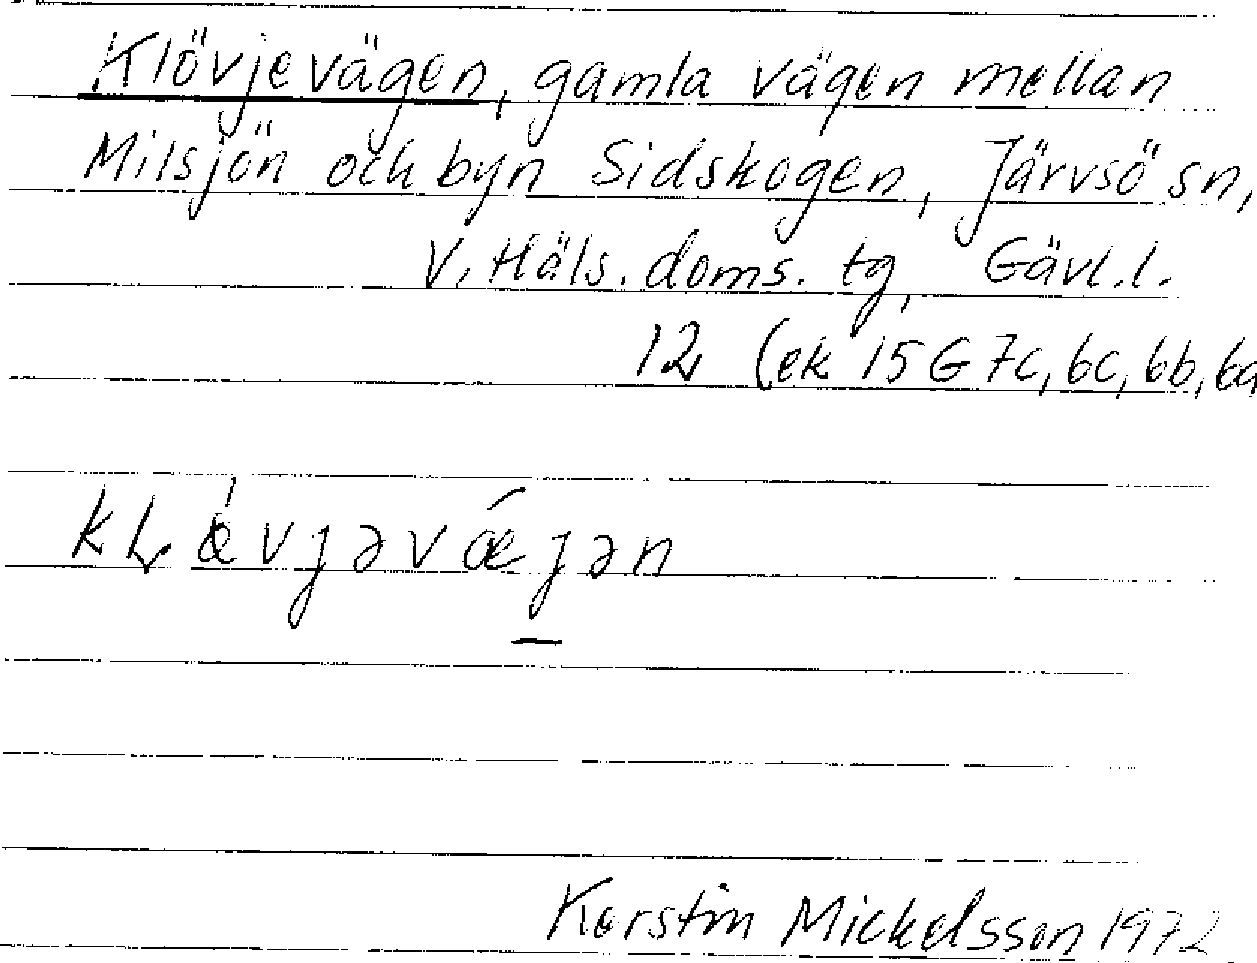 Klövjevägen, gamla vägen mellan
Milsjön och byn Sidskogen, Järvsö sn,
V. Häls. doms. tg, Gävl.l.
12 (ek 15G 7c, 6c, 6b, 6a
vjəvǽjən
Kerstin Mickelsson 1972